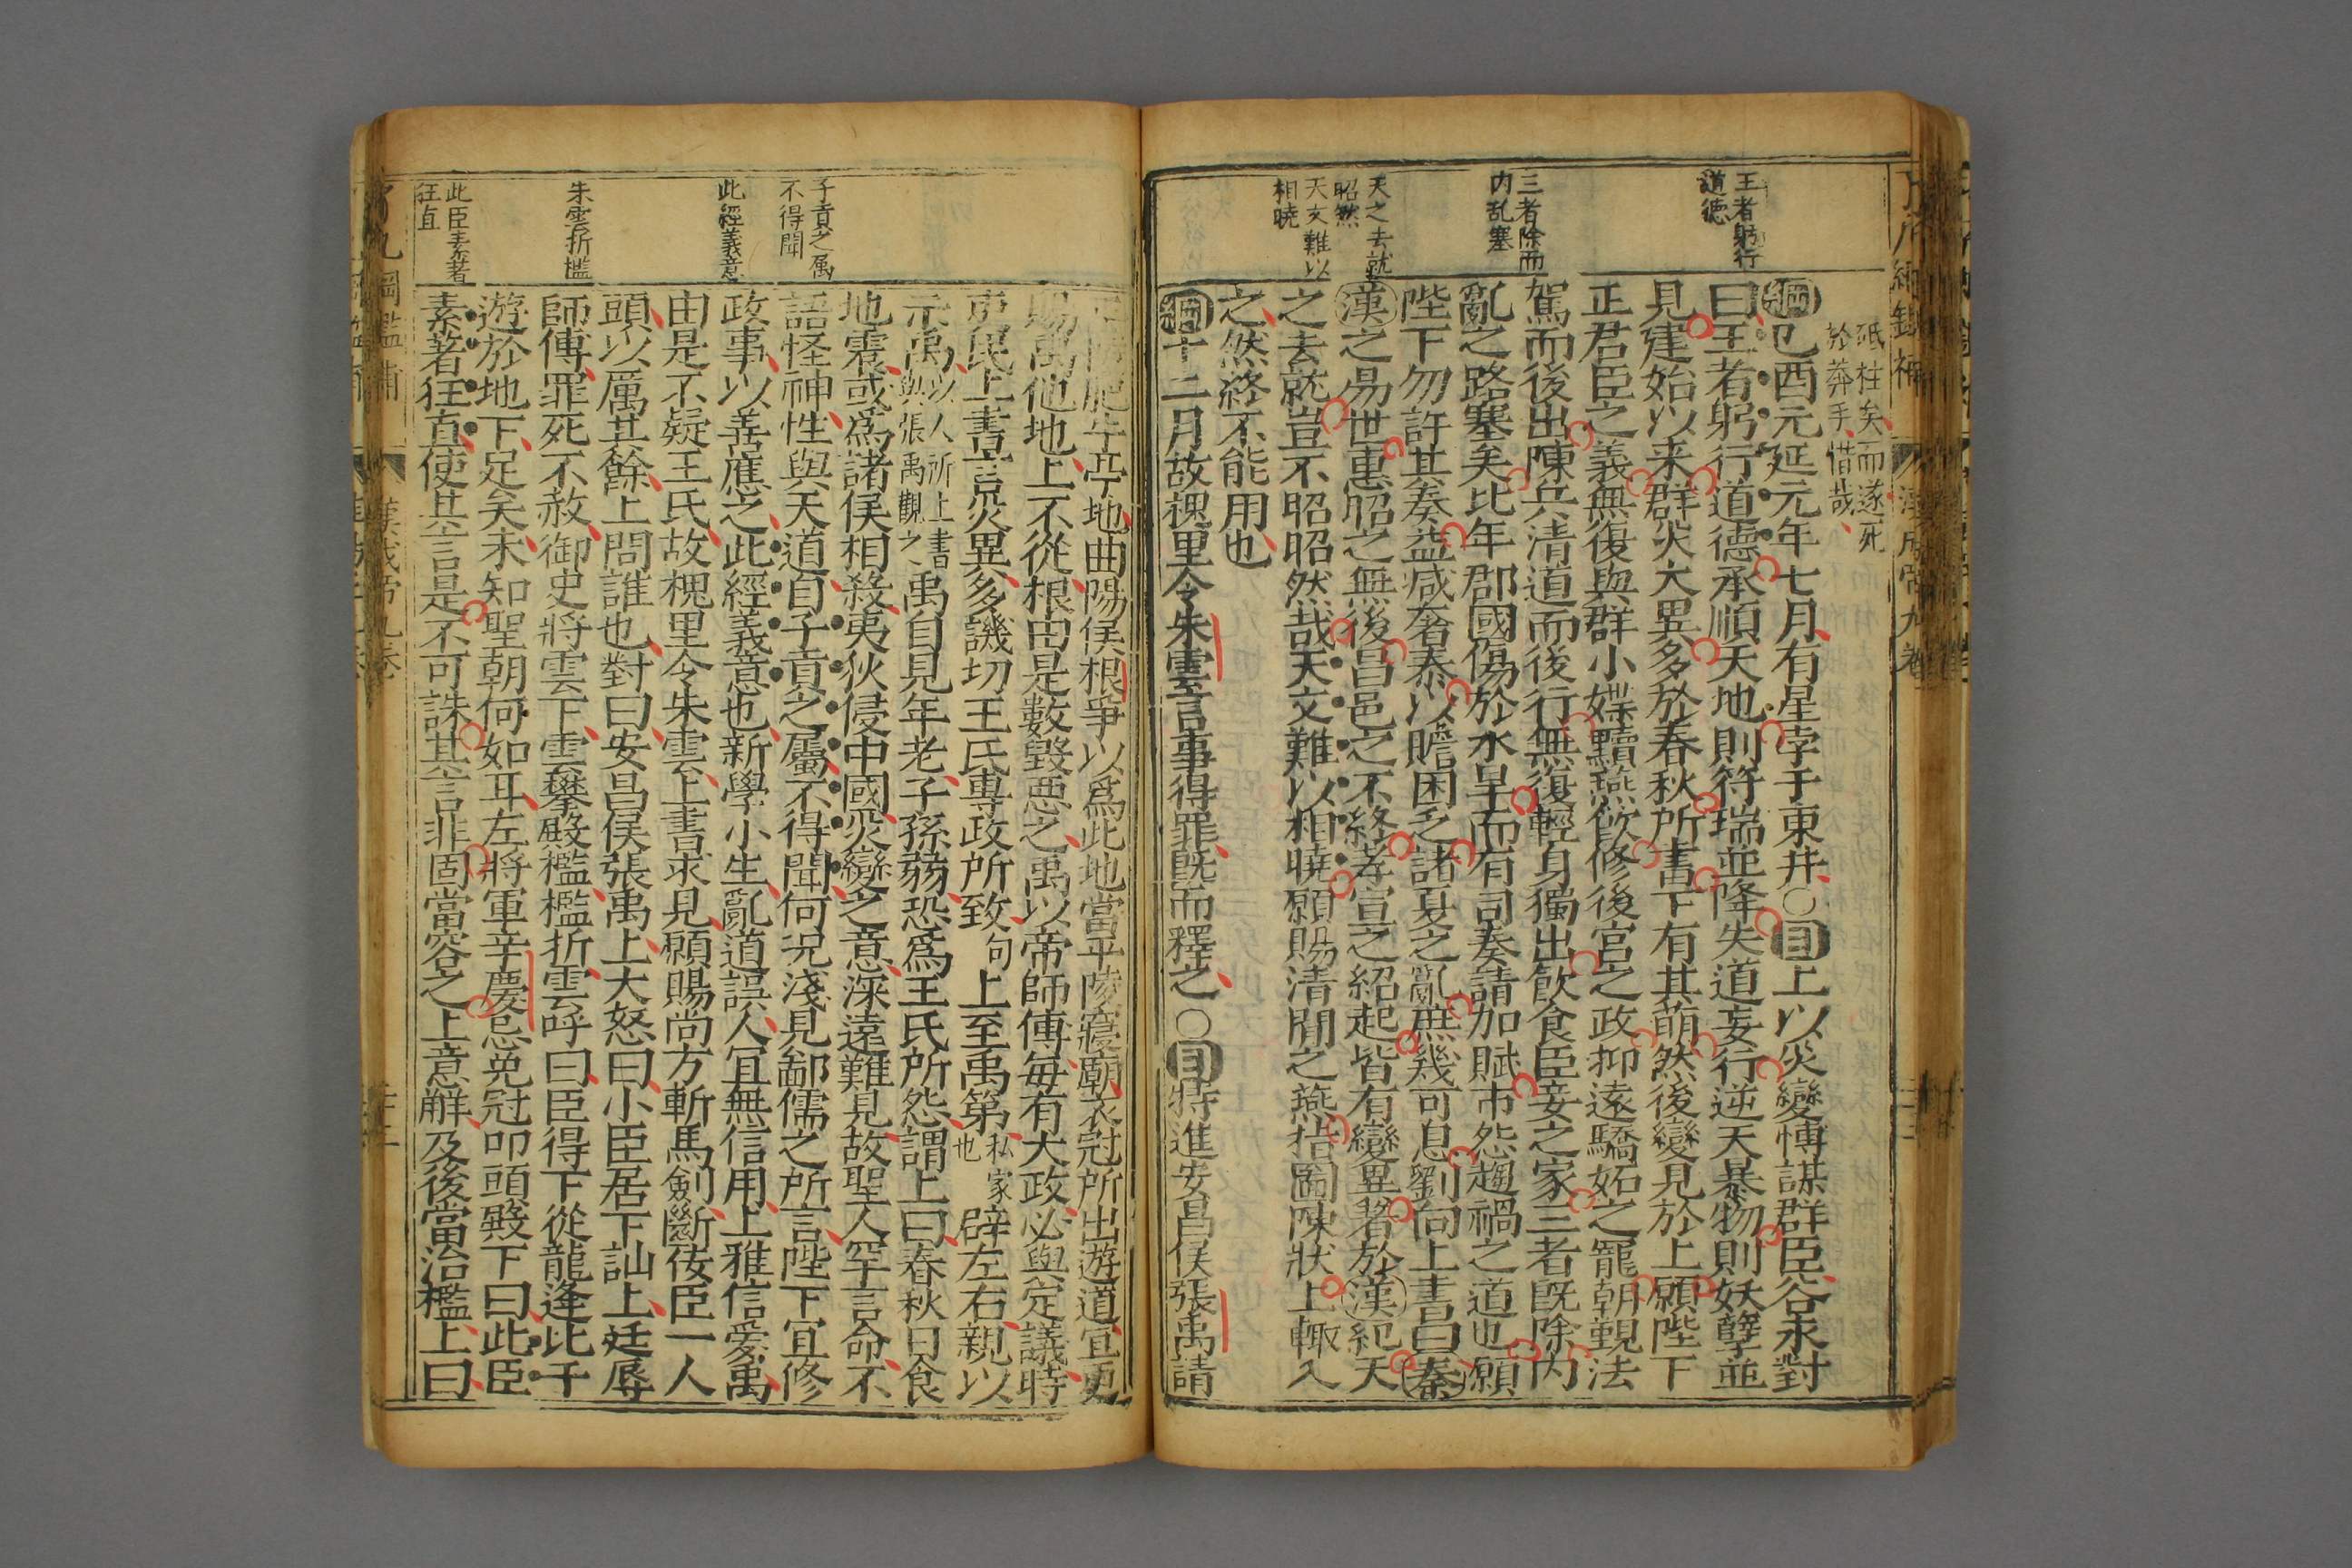 王者躬行
道德
三者除而
内乱塞
天之去就
昭然
天文難以
相曉
砥柱矣而遂死
於莽手惜哉
綱己酉元延元年七月有星孛于東井○目上以災變愽謀群臣谷永對
曰王者躬行道德承順天地則符瑞並降失道妄行逆天暴物則妖孽並
見建始以来群災大異多於春秋所書下有其萌然後變見於上願陛下
正君臣之義無復與群小媟黷燕飲修後宮之政抑遠驕妬之寵朝覲法
駕而後出陳兵清道而後行無復輕身獨出飲食臣妾之家三者旣除内
亂之路塞矣比年郡國傷於水旱而有司奏請加賦市怨趨禍之道也願
陛下勿許其奏益减奢泰以贍困乏諸夏之亂庶幾可息劉向上書曰秦
漢之易世惠昭之無後昌邑之不終孝宣之紹起皆有變異著於漢紀天
之去就豈不昭昭然哉天文難以相曉願賜清閒之燕指圖陳狀上輙入
之然終不能用也
綱十二月故槐里令朱雲言事得罪旣而釋之○目特進安昌侯張禹請
子貢之属
不得聞
此經義意
朱雲折檻
此臣素著
狂直
平陵肥牛亭地曲陽侯根爭以爲此地當平陵寢廟衣冠所出遊道宜更
賜禹他地上不從根由是數毀惡之禹以帝師傅毎有大政必與定議時
吏民上書言災異多譏切王氏專政所致句上至禹第私家也辟左右親以
示禹以人所上書與張禹觀之禹自見年老子孫弱恐爲王氏所怨謂上曰春秋日食
地震或爲諸侯相殺夷狄侵中國災變之意深遠難見故聖人罕言命不
語怪神性與天道自子貢之屬不得聞何况淺見鄙儒之所言陛下宜修
政事以善應之此經義意也新學小生亂道誤人宜無信用上雅信愛禹
由是不疑王氏故槐里令朱雲上書求見願賜尚方斬馬劍斷佞臣一人
頭以厲其餘上問誰也對曰安昌侯張禹上大怒曰小臣居下訕上廷辱
師傅罪死不赦御史將雲下雲攀殿檻檻折雲呼曰臣得下從龍逢比干
遊於地下足矣未知聖朝何如耳左將軍辛慶忌免冠叩頭殿下曰此臣
素著狂直使其言是不可誅其言非固當容之上意解及後當治檻上曰